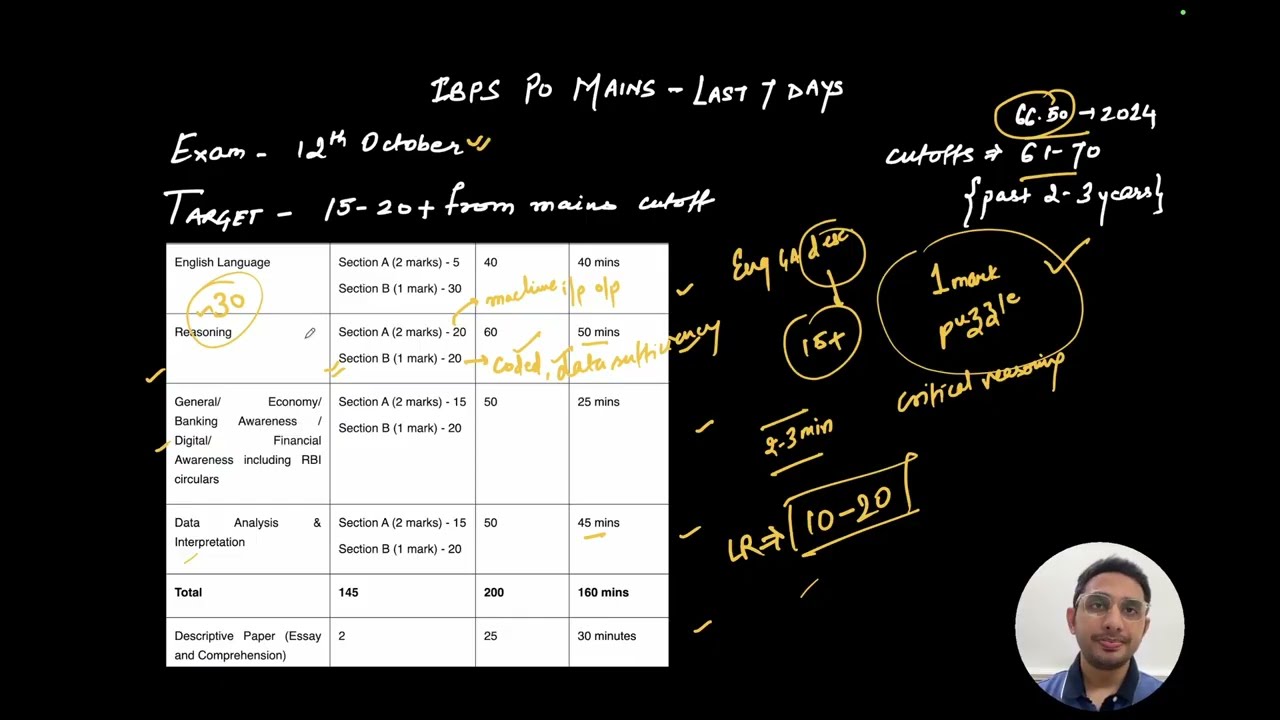 IBPS PO MAINS - LAST 7 DAYS
66.50 → 2024
Exam - 12th October
cutoffs ⇒ 61-70
{past 2-3 years}
TARGET - 15-20+ from mains cutoff
English Language
Section A (2 marks) - 5
Section B (1 mark) - 30
40
40 mins
~30
machine i/p o/p
Reasoning
Section A (2 marks) - 20
Section B (1 mark) - 20
60
50 mins
→ coded, data sufficiency
General/ Economy/
Banking Awareness /
Digital/ Financial
Awareness including RBI
circulars
Section A (2 marks) - 15
Section B (1 mark) - 20
50
25 mins
Data Analysis &
Interpretation
Section A (2 marks) - 15
Section B (1 mark) - 20
50
45 mins
Total
145
200
160 mins
Descriptive Paper (Essay
and Comprehension)
2
25
30 minutes
Eng GA desc
15+
1 mark
puzzle
critical reasoning
2-3 min
LR ⇒ 10-20